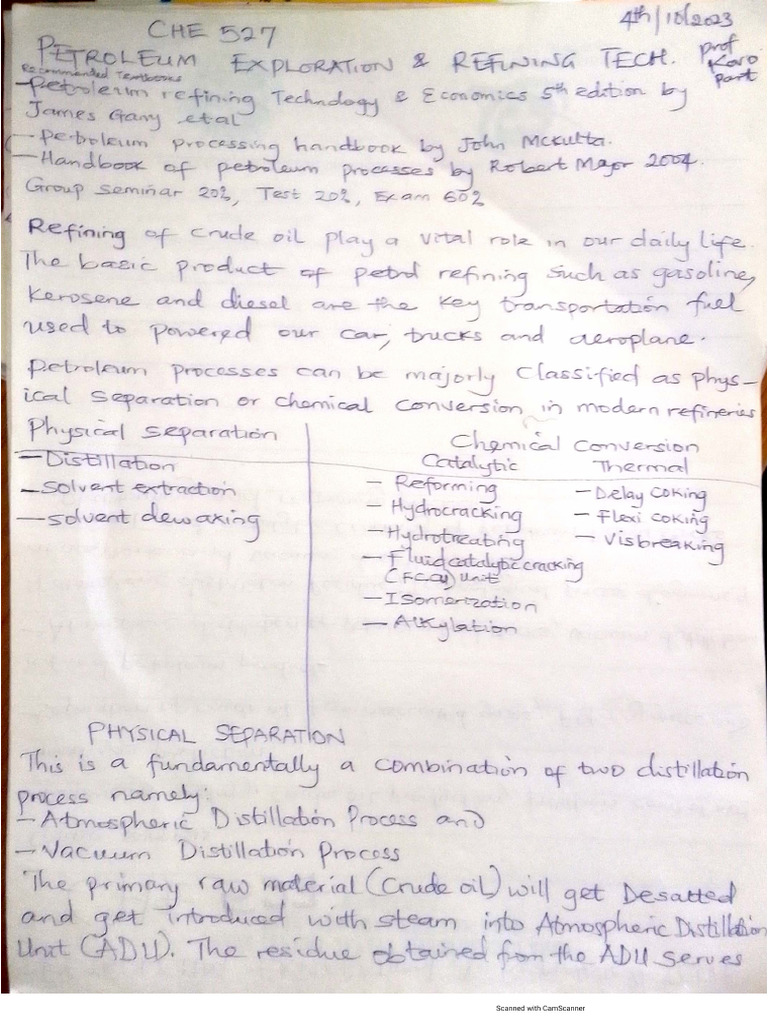 4th/10/2023
CHE 527
PETROLEUM EXPLORATION & REFINING TECH.
prof
Karo
part
Recommended Textbooks
- Petroleum refining Technology & Economics 5th edition by
James Gary etal
- Petroleum processing handbook by John Mcketta.
- Handbook of petroleum processes by Robert Major 2004.
Group Seminar 20%, Test 20%, Exam 60%
Refining of crude oil play a vital role in our daily life.
The basic product of petrol refining such as gasoline,
kerosene and diesel are the key transportation fuel
used to powered our car, trucks and aeroplane.
Petroleum processes can be majorly classified as phys-
ical separation or chemical conversion in modern refineries
Physical separation
- Distillation
- Solvent extraction
- solvent dewaxing
Chemical conversion
Catalytic Thermal
- Reforming - Delay coking
- Hydrocracking - Flexi coking
- Hydrotreating - Visbreaking
- Fluid catalytic cracking
(FCCU) Unit
- Isomerization
- Alkylation
PHYSICAL SEPARATION
This is a fundamentally a combination of two distillation
process namely:
- Atmospheric Distillation Process and
- Vacuum Distillation Process
The primary raw material (Crude oil) will get Desalted
and get introduced with steam into Atmospheric Distillation
Unit (ADU). The residue obtained from the ADU serves
Scanned with CamScanner